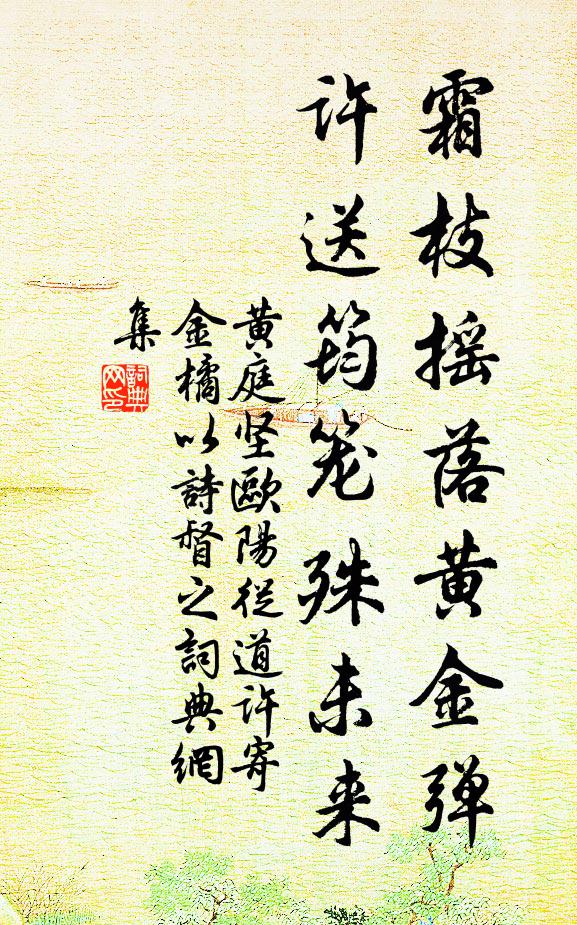 霜枝摇落黄金弹
许送筠笼殊未来
黄庭坚歐陽從道许寄
金橘以詩督之詞典網
集
詞典
网印